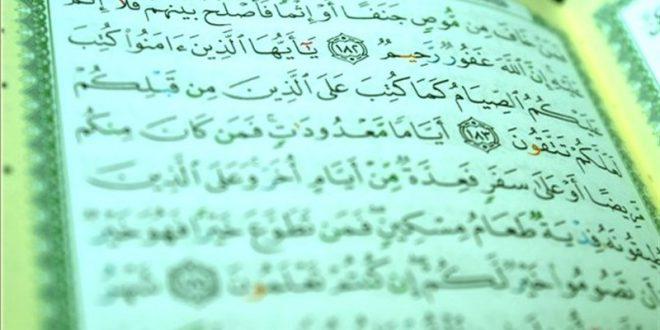 خَافَ مِن مُّوصٍ جَنَفًا أَوْ إِثْمًا فَأَصْلَحَ بَيْنَهُمْ فَلَآ إِثْمَ
عَلَيْهِ إِنَّ ٱللَّهَ غَفُورٌ رَّحِيمٌ ١٨٢ يَٰٓأَيُّهَا ٱلَّذِينَ ءَامَنُوا۟ كُتِبَ
عَلَيْكُمُ ٱلصِّيَامُ كَمَا كُتِبَ عَلَى ٱلَّذِينَ مِن قَبْلِكُمْ
لَعَلَّكُمْ تَتَّقُونَ ١٨٣ أَيَّامًا مَّعْدُودَٰتٍ فَمَن كَانَ مِنكُم
مَّرِيضًا أَوْ عَلَىٰ سَفَرٍ فَعِدَّةٌ مِّنْ أَيَّامٍ أُخَرَ وَعَلَى ٱلَّذِينَ
يُطِيقُونَهُۥ فِدْيَةٌ طَعَامُ مِسْكِينٍ فَمَن تَطَوَّعَ خَيْرًا فَهُوَ خَيْرٌ
وَأَن تَصُومُوا۟ خَيْرٌ لَّكُمْ إِن كُنتُمْ تَعْلَمُونَ شَهْرُ